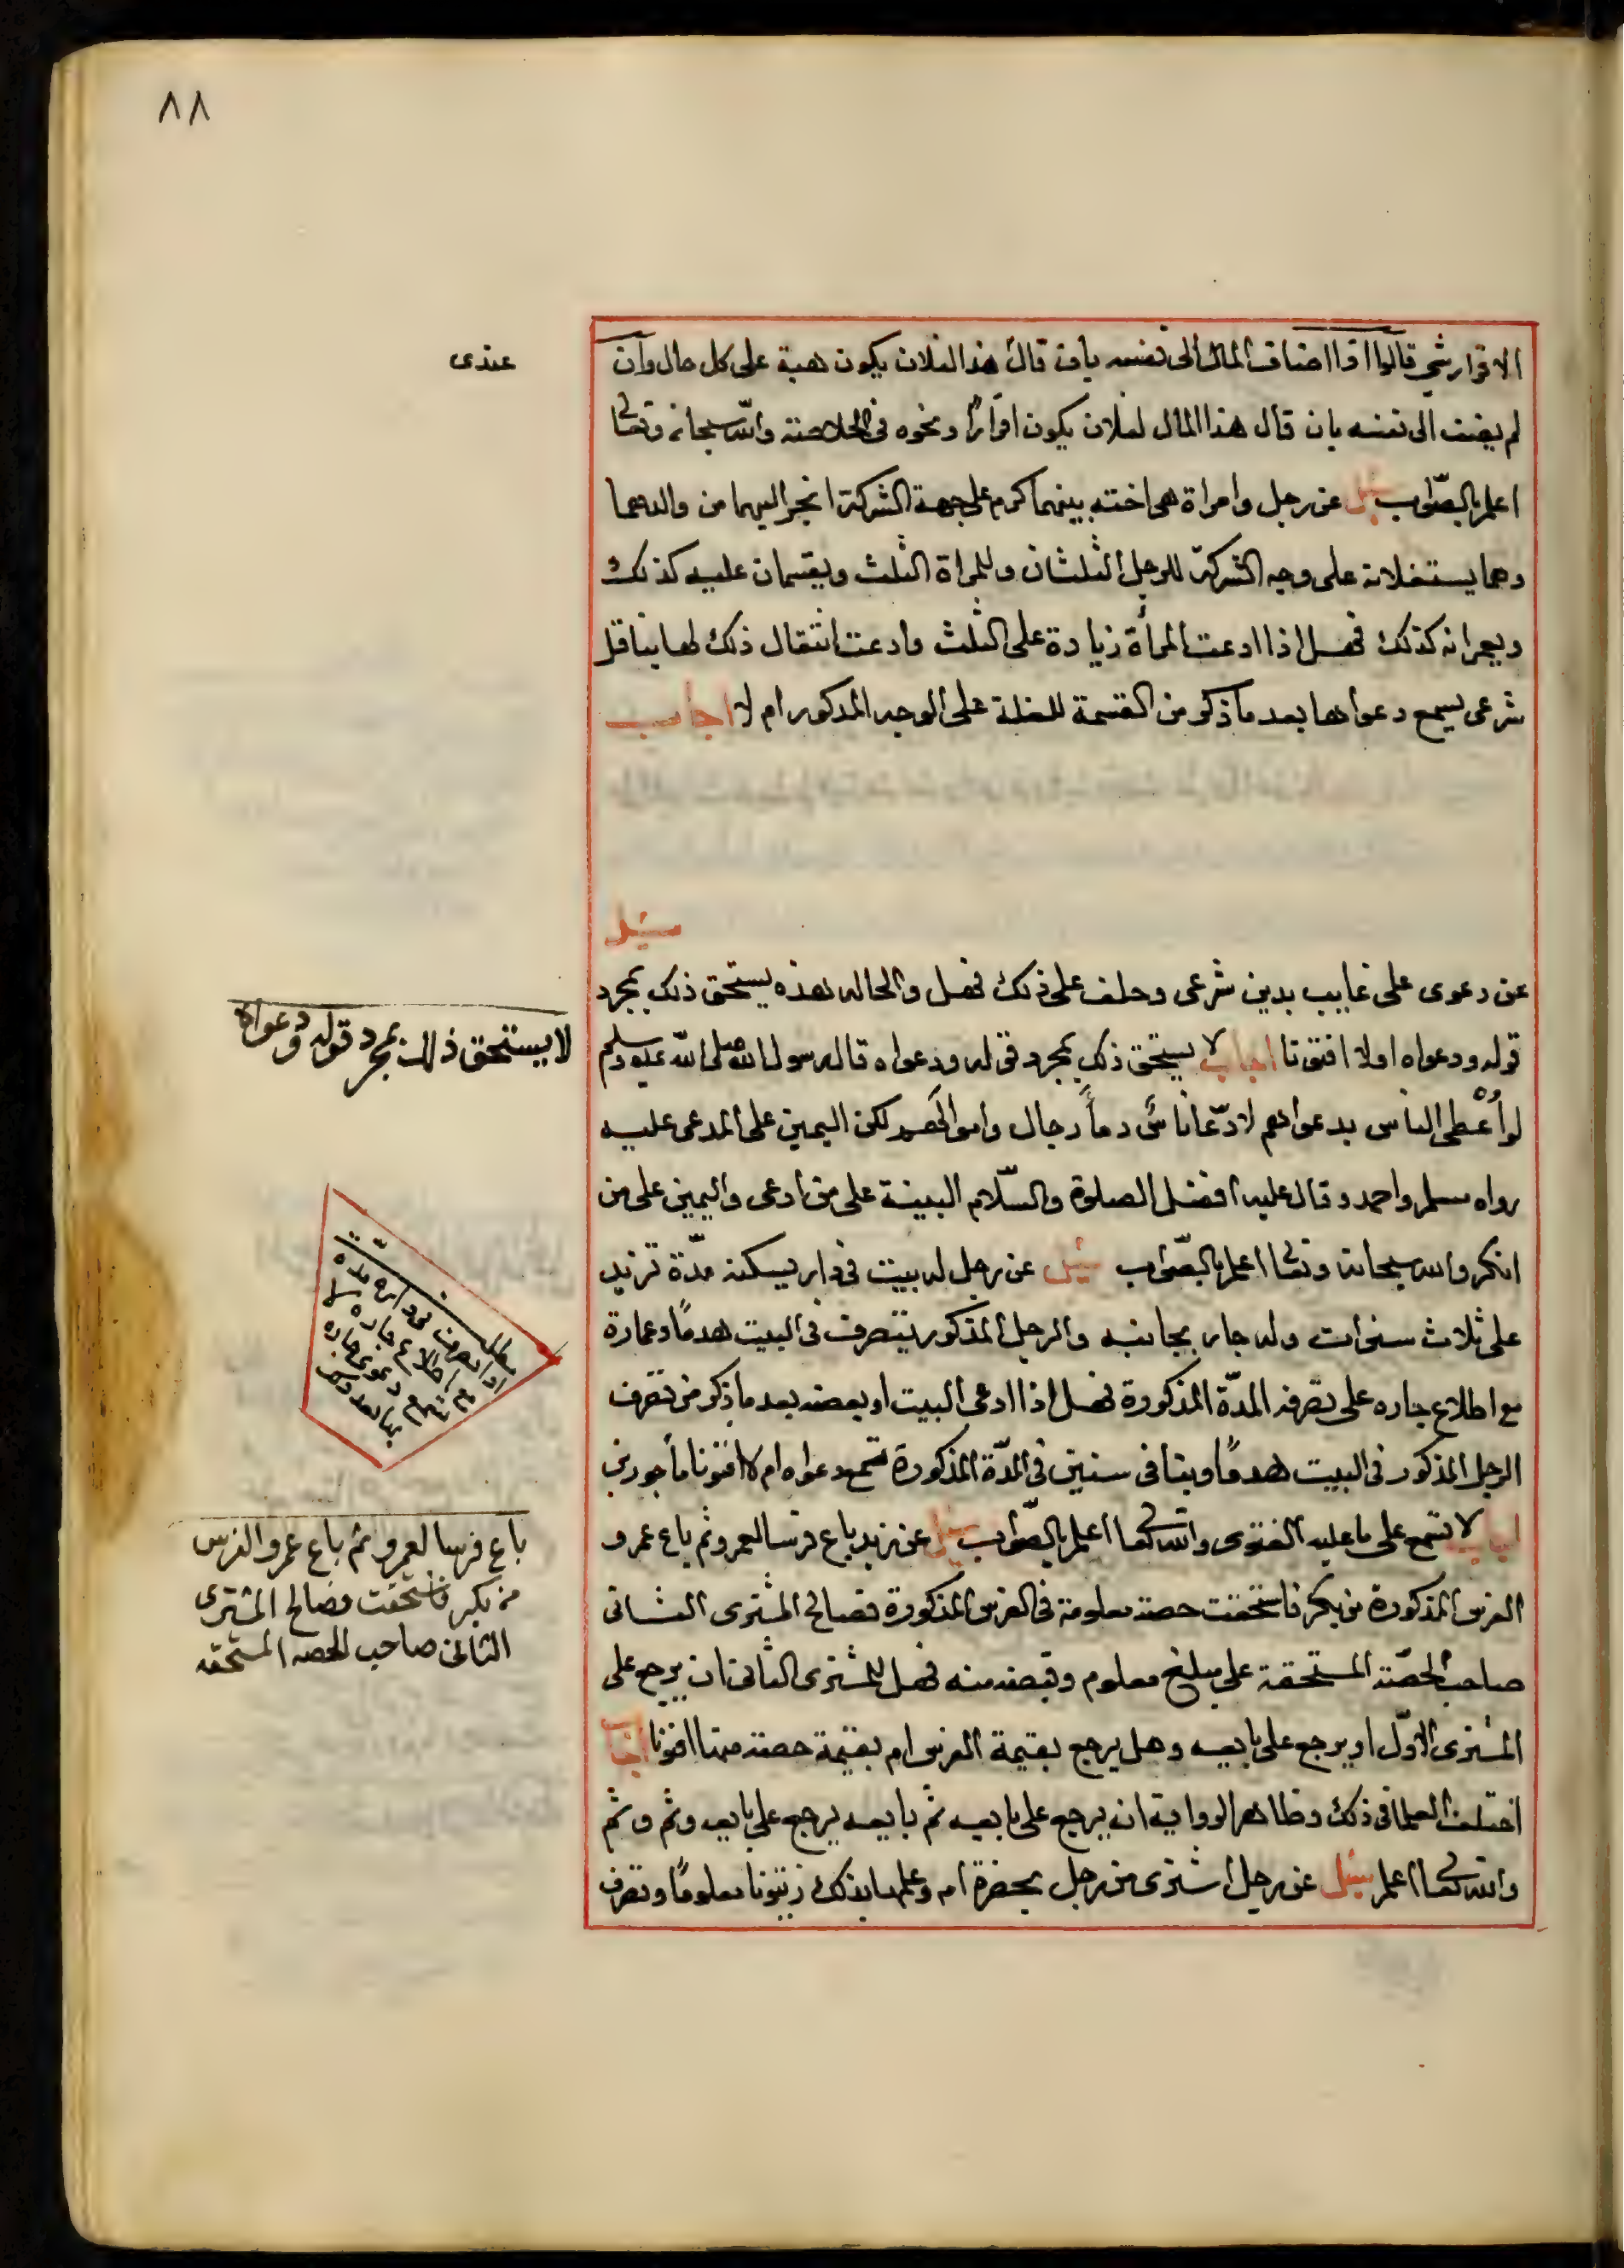 ٨٨
الاقرار شي قالوا اذا اضاف المال الى نفسه بان قال هذا لفلان يكون هبة على كل حال وان
عندى
لم يضف الى نفسه بان قال هذا المال لفلان يكون اقرارًا ونحوه فى الخلاصة والله سبحانه وتعالى
اعلم بالصّواب سئل عن رجل وامراة هى اخته بينهما كرم على جهة الشركة انجر اليهما من والدهما
وهما يستغلانه على وجه الشركة للرجل الثلثان وللمراة الثلث ويقتسمان عليه كذلك
كذلك فهل اذا ادعت المرأة زيادة على الثلث وادعت انتقال ذلك لها بناقل
شرعى يسمع دعواها بعد ما ذكر من القسمة للغلة على الوجه المذكور ام لا اجاب
سئل
عن دعوى على غايب بدين شرعى وحلف على ذلك فهل والحاله هذه يستحق ذلك بمجرد
قوله ودعواه اولا افتونا اجاب لا يستحق ذلك بمجرد قوله ودعواه قال رسول الله صلى الله عليه وسلم
لا يستحق ذلك بمجرد قوله ودعواه
لو اُعْطى الناس بدعواهم لادّعا ناسٌ دمأ رجال واموالهم لكن اليمين على المدعى عليه
رواه مسلم واحمد وقال عليه افضل الصلوة والسّلام البينة على من ادعى واليمين على من
انكر والله سبحانه وتعالى اعلم بالصّواب سئل عن رجل له بيت فى دار يسكنه مدّة تزيد
على ثلاث سنوات وله جار بجانبه والرجل المذكور يتصرف فى البيت هدمًا وعمارة
مع اطلاع جاره على تصرفه المدّة المذكورة فهل اذا ادعى البيت او بعضه بعد ما ذكر من تصرف
الرجل المذكور فى البيت هدمًا وبنا فى سنين فى المدّة المذكورة تسمع دعواه ام لا افتونا مأجورين
اجاب لا تسمع على ما عليه الفتوى والله تعالى اعلم بالصّواب سئل عن زيد باع فرسا لعمرو ثم باع عمرو
الفرس المذكورة من بكر فاستحقت حصة معلومة فى الفرس المذكورة فصالح المشترى الثانى
صاحب الحصّة المستحقة على مبلغ معلوم وقبضه منه فهل للمشترى الثانى ان يرجع على
المشترى الاوّل او يرجع على بايعه وهل يرجع بقيمة الفرس ام بقيمة حصته منها افتونا اجاب
اختلف العلما فى ذلك وظاهر الرواية ان يرجع على بايعه ثم بايعه يرجع على بايعه وثم وثم
والله تعالى اعلم سئل عن رجل اشترى من رجل بحضرة ام وعلمها بذلك زيتونا معلومًا وتصرف
باع فرسا لعمرو ثم باع عمرو الفرس
من بكر فاستحقت فصالح المشترى
الثانى صاحب الحصه المستحقه